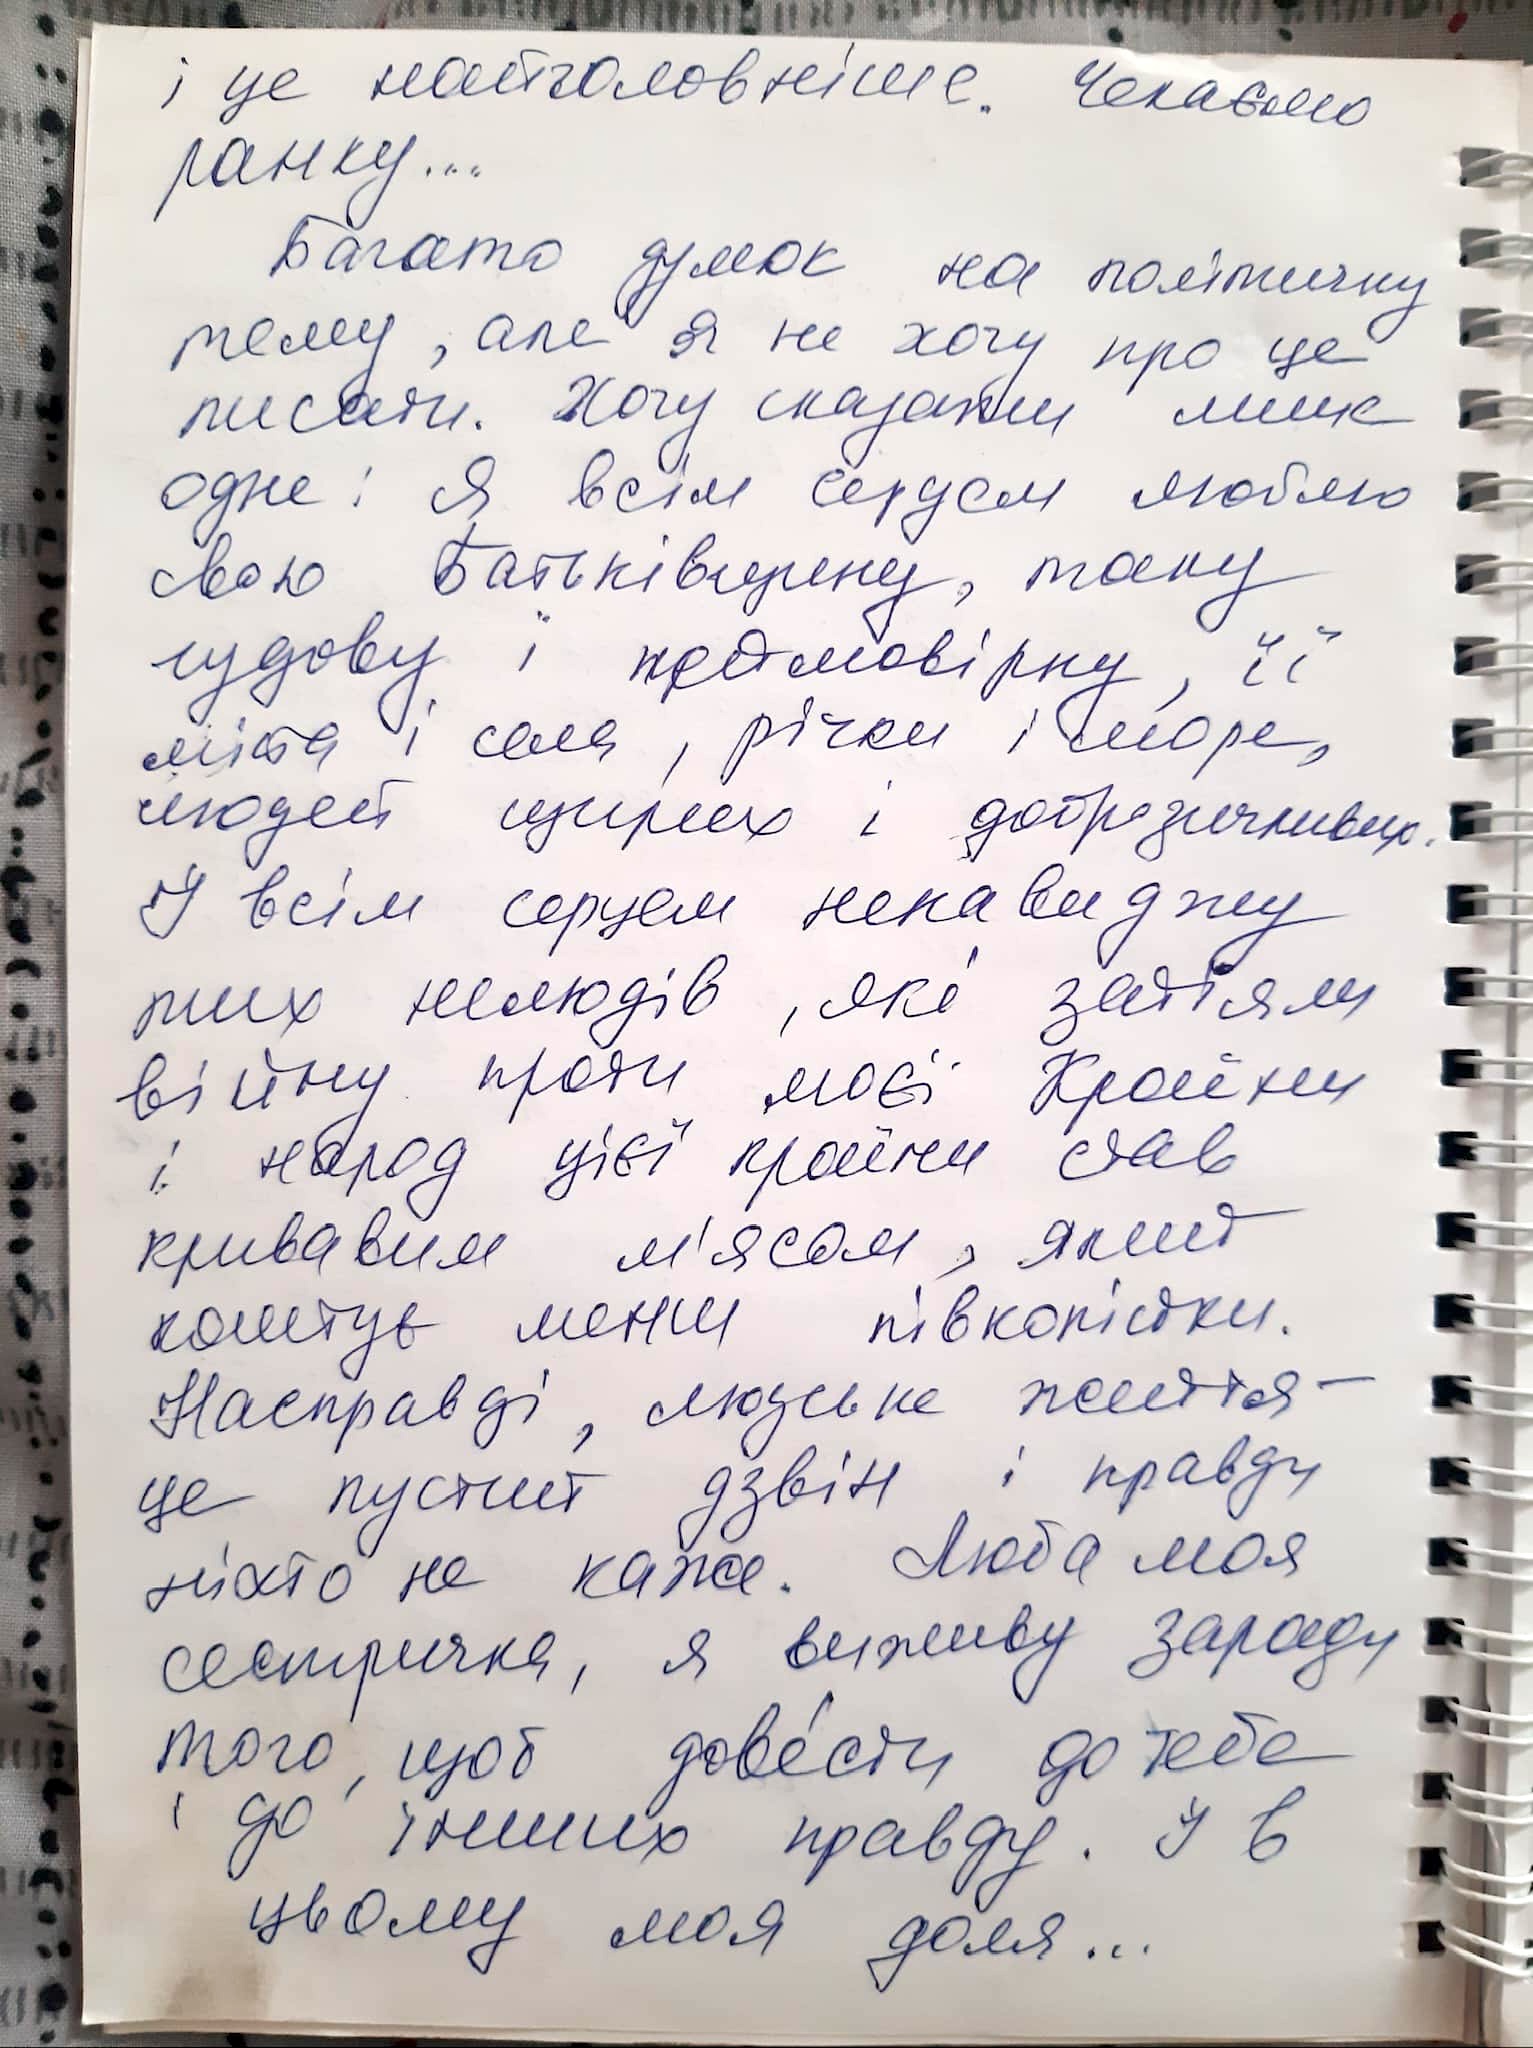 і це найголовніше. Чекаємо
ранку...
Багато думок на політичну
тему, але я не хочу про це
писати. Хочу сказати лише
одне: Я всім серцем люблю
свою Батьківщину, таку
чудову і неймовірну, її
міста і села, річки і море,
людей щирих і доброзичливих.
І всім серцем ненавиджу
тих нелюдів, які затіяли
війну проти моєї Країни
і народ цієї країни став
кривавим м'ясом, який
коштує менш півкопійки.
Насправді, людське життя -
це пустий дзвін і правду
ніхто не каже. Люба моя
сестричка, я виживу заради
того, щоб довести до тебе
і до інших правду. І в
цьому моя доля...